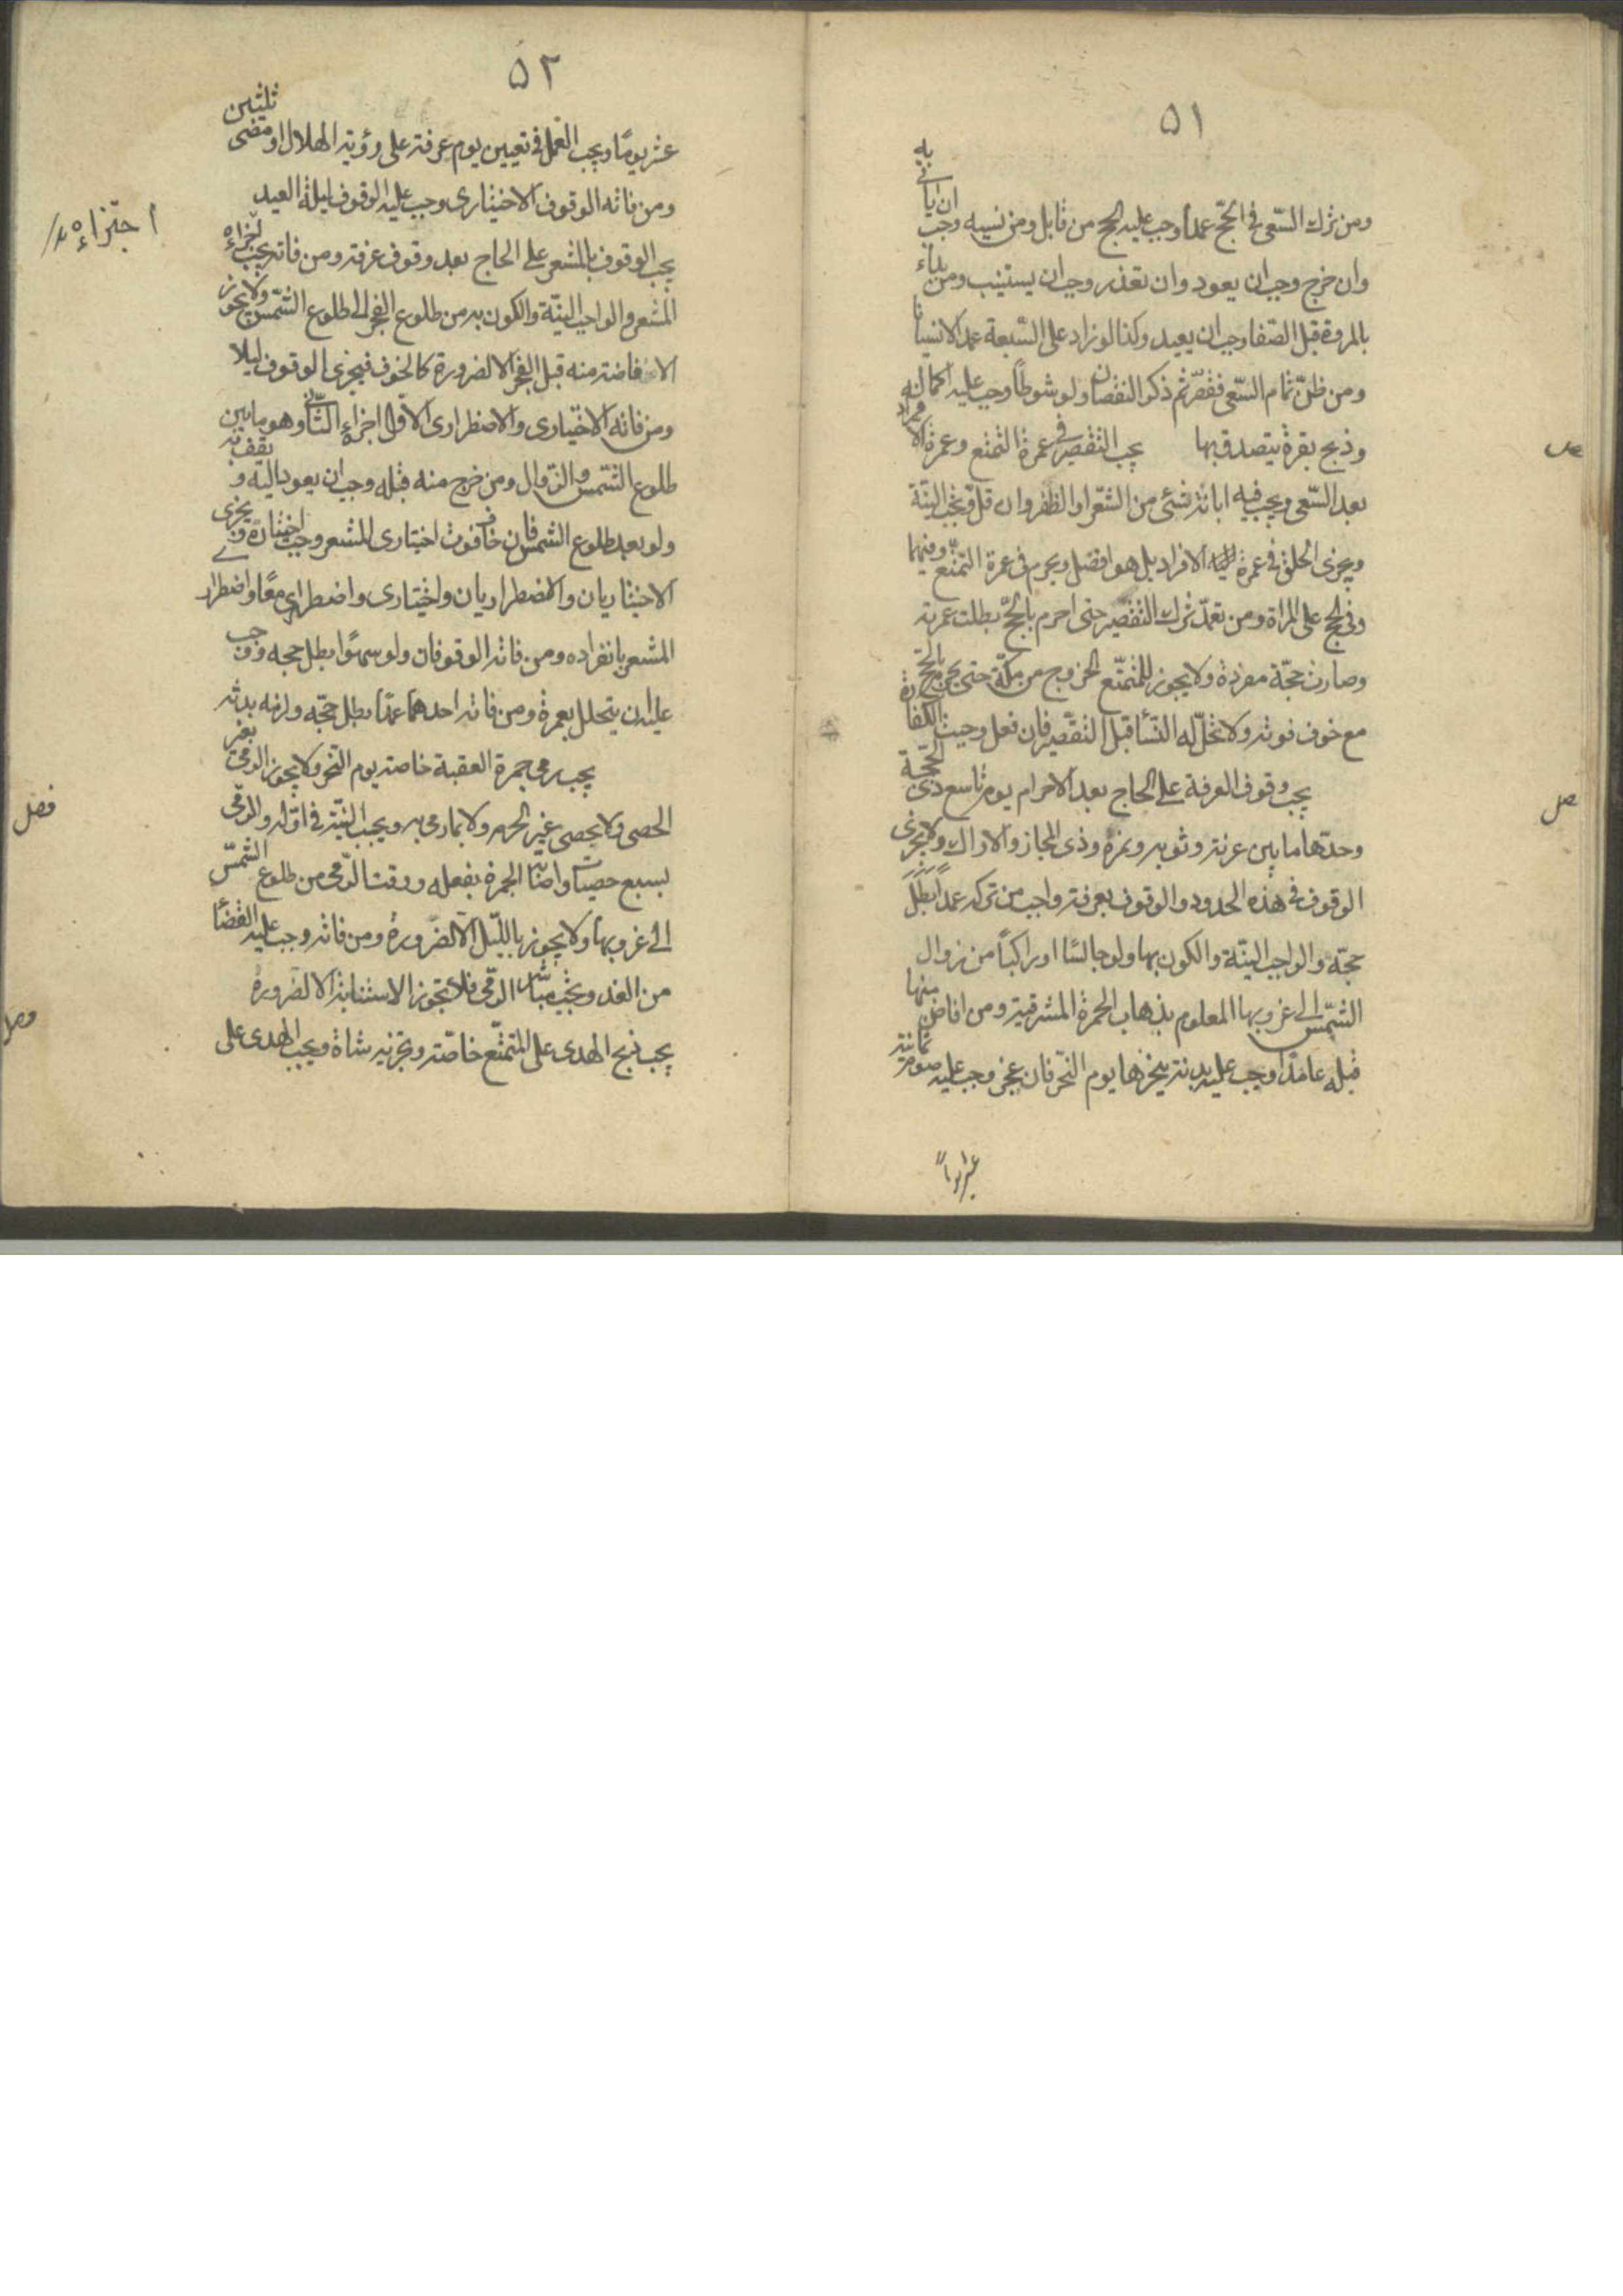 ٥١
ومن ترك السّعى فى الحجّ عمداً وجب عليه الحج من قابل ومن نسيه وجب ان يأتى به
وان خرج وجب ان يعود وان تعذر وجب ان يستنيب ومن بداء
بالمروة قبل الصّفا وجب ان يعيد وكذا لو زاد على السّبعة عمدا لا نسيانا
ومن ظنّ تمام السّعى فقصّر ثم ذكر النقصان ولو شوطاً وجب عليه اكماله
وذبح بقرة يتصدق بها يجب التقصير فى عمرة التمتع وعمرة الافراد
بعد السّعى ويجب فيه ابانة شئ من الشّعر او الظفر وان قلّ ويجب النيّة
ويجزى الحلق فى عمرة الافراد بل هو افضل ويحرم فى عمرة التمتّع وفيهما
وفى الحج على المراة ومن تعمّد ترك التقصير حتى احرم بالحجّ بطلت عمرته
وصارت حجّة مفردة ولا يجوز للمتمتّع الخروج من مكّة حتى يحرم بالحجّ
مع خوف فوته ولا تحلّ له النّسأ قبل التقصير فان فعل وجبت الكفارة
يجب وقوف العرفة على الحاج بعد الاحرام يوم تاسع ذى الحجّة
وحدّها ما بين عرنة وثويه ونمرة وذى المجاز والاراك ولا يجزى
الوقوف فى هذه الحدود والوقوف بعرفة واجب من تركه عمداً بطل
حجّه والواجب النيّة والكون بها ولو جالسًا او راكباً من زوال
الشّمس الى غروبها المعلوم بذهاب الحمرة المشرقية ومن افاض منها
قبله عامدًا وجب عليه بدنة ينحرها يوم النّحر فان عجز وجب عليه صوم ثمانية
عشر يوماً
٥٢
عشر يومًا ويجب العمل فى تعيين يوم عرفة على رؤية الهلال او مضى ثلثين
ومن فاته الوقوف الاختيارى وجب عليه الوقوف ليلة العيد
يجب الوقوف بالمشعر على الحاج بعد وقوف عرفة ومن فاته يجب اجزاءه
اجتزاءه
المشعر والواجب النيّة والكون به من طلوع الفجر الى طلوع الشّمس ولا يجوز
الافاضة منه قبل الفجر الا لضرورة كالخوف فيجزى الوقوف ليلا
ومن فاته الاختيارى والاضطرارى الاوّل اجزاء الثّانى وهو ما بين
طلوع الشّمس والزّوال ومن خرج منه قبله وجب ان يعود اليه و يقف به
ولو بعد طلوع الشمس فان خاف فوت اختيارى المشعر وجب اختياره ويجزى
الاختياريان والاضطراريان واختيارى واضطرارى معًا واضطرار
المشعر بانفراده ومن فاته الوقوفان ولو سهوًا بطل حجه ووجب
عليه ان يتحلل بعمرة ومن فاته احدهما عمدًا بطل حجّه ولزمه بدنة
فصل
يجب رمى جمرة العقبة خاصة يوم النّحر ولا يجوز الرمى بغير
الحصى ولا بحصى غير الحرم ولا بما رمى به ويجب النيّة فى اوّله والرّمى
بسبع حصيات واصابة الجمرة بفعله ووقت الرّمى من طلوع الشّمس
الى غروبها ولا يجوز بالليّل الّا لضرورة ومن فاته وجب عليه القضأ
من الغد ويجب مباشرة الرّمى فلا يجوز الاستنابة الا لضرورة
يجب ذبح الهدى على المتمتّع خاصّة وتجزيه شاة ويجب الهدى على